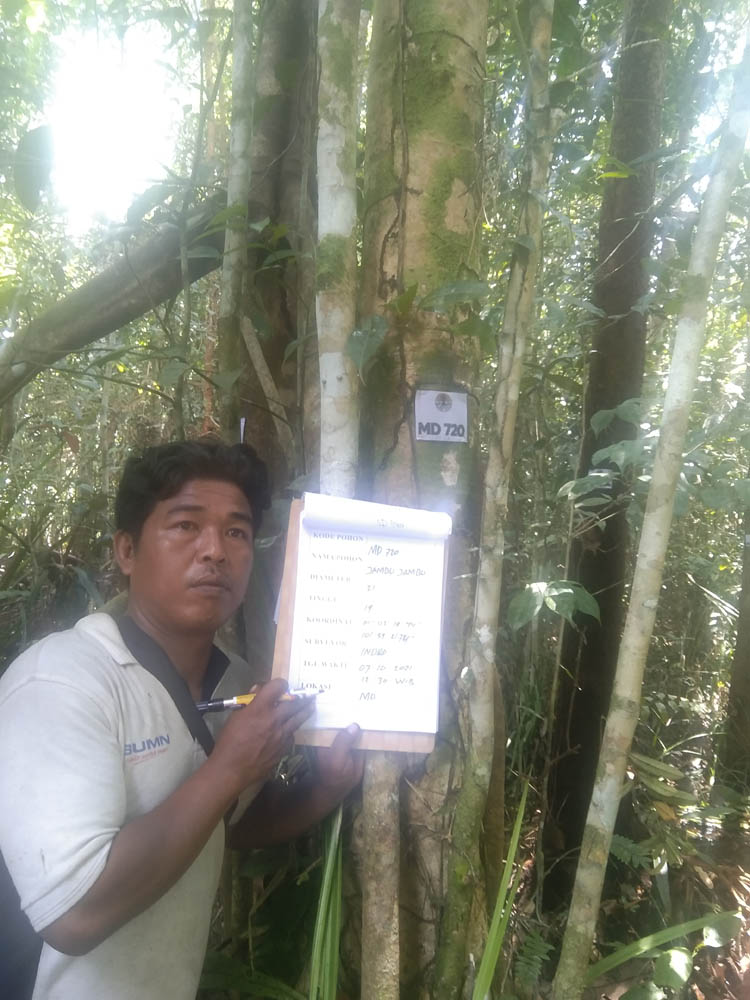 MD 720
KODE POHON
MD 720
NAMA POHON
JAMBU JAMBU
DIAMETER
21
TINGGI
19
KOORDINAT
SURVEYOR
INDRA
TGL WAKTU
07.10 2021
12.30 WIB
LOKASI
MD
BUMN